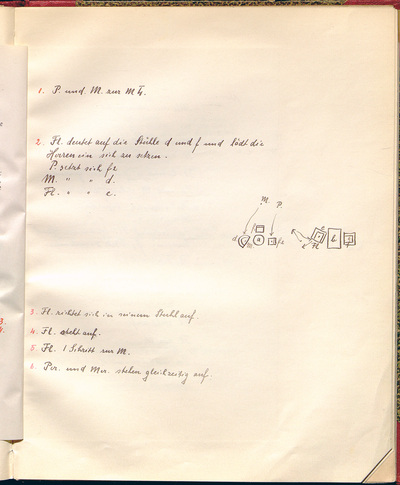 1. P. und M. zur M
2. Fl. deutet auf die Stühle d und f und lädt die
Herren ein sich zu setzen.
P. setzt sich f2
M. " " d.
Fl. " " e.
M.
P.
d
f2
3. Fl. richtet sich in seinem Stuhl auf.
4. Fl. steht auf.
5. Fl. 1 Schritt zur M.
6. Per. und Mer. stehen gleichzeitig auf.